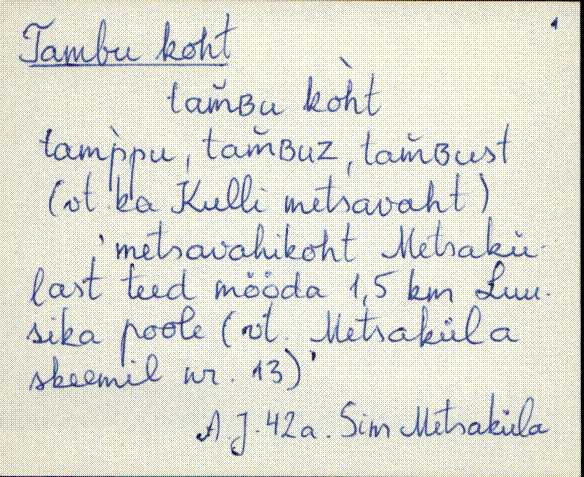 1
Tambu koht
tam̆ʙu kòht
tamp̀pu, tam̆ʙuz, tam̆ʙust
(vt. ka Kulli metsavaht)
'metsavahikoht Metsakü-
last teed mööda 1,5 km Luu-
sika poole (vt. Metsaküla
skeemil nr. 13)'
A J. 42a. Sim Metsaküla